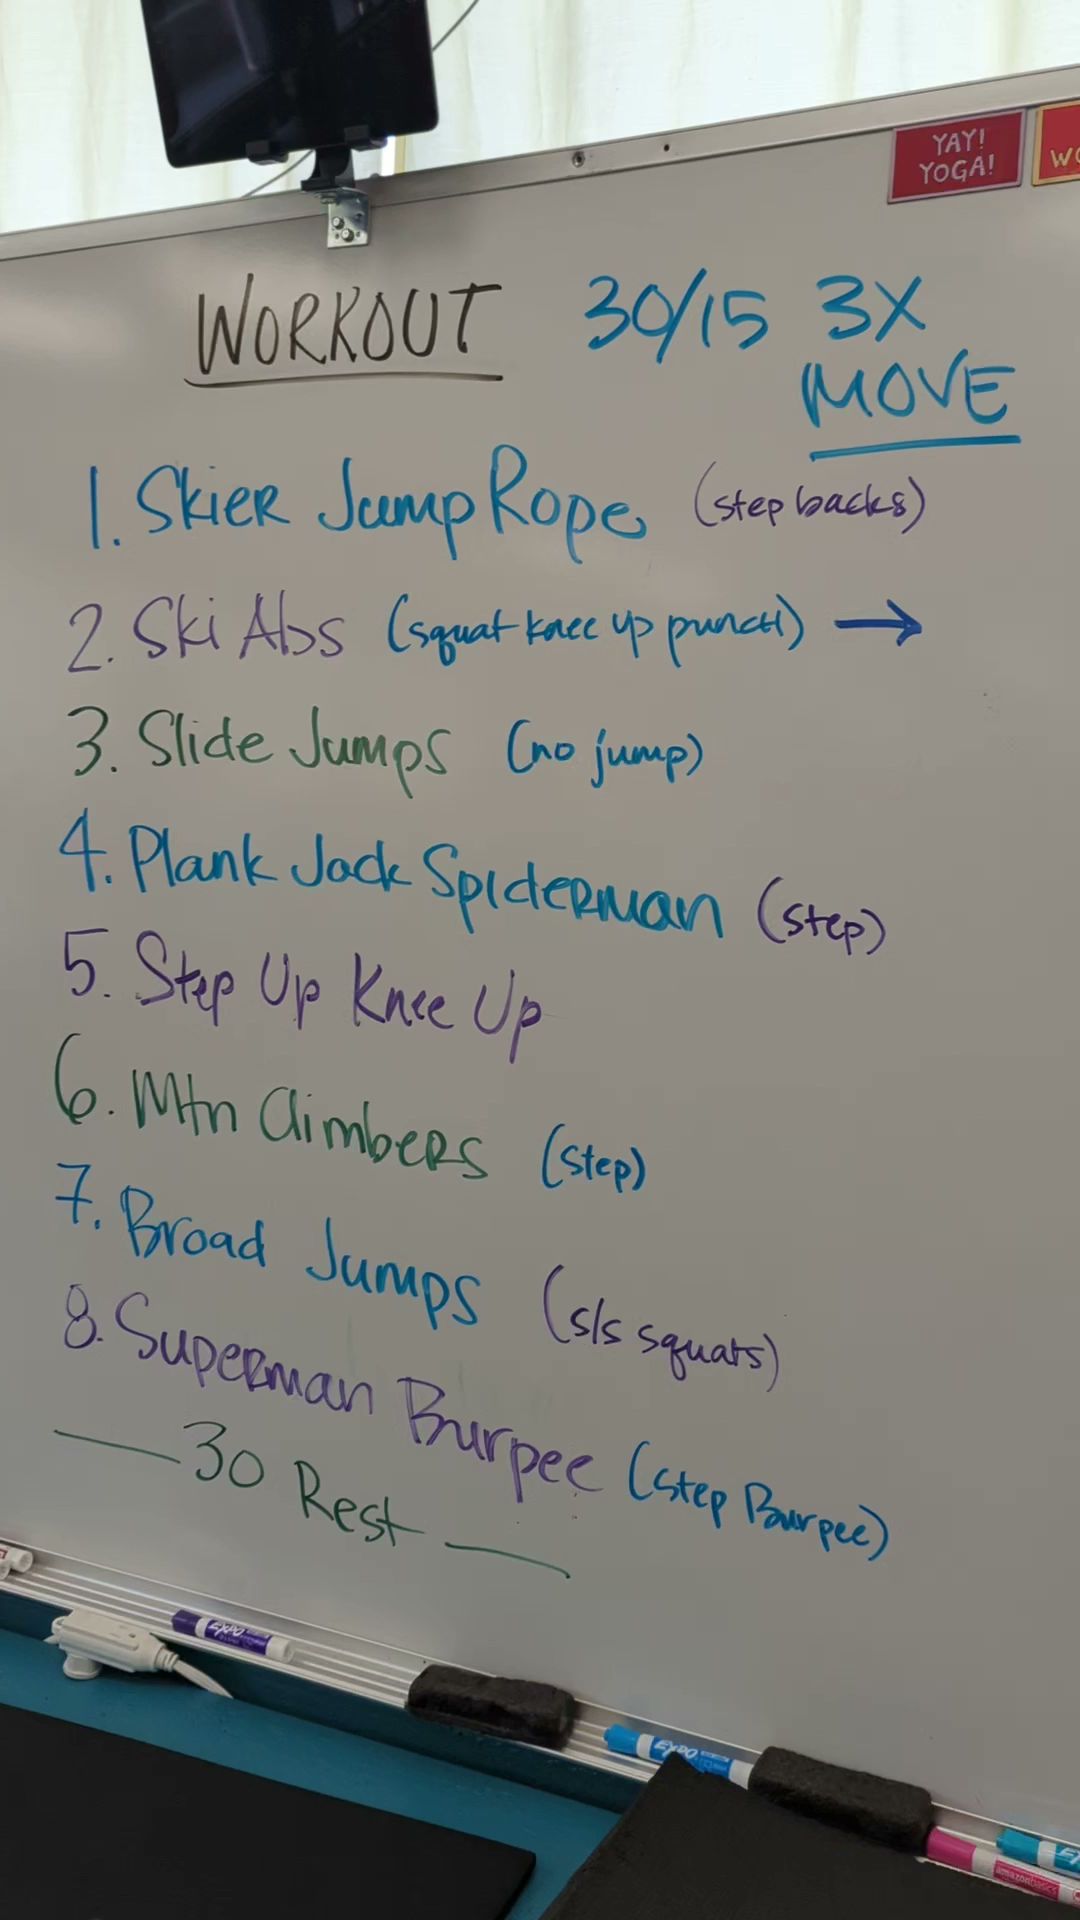 YAY!
YOGA!
WORKOUT 30/15 3X
MOVE
1. Skier Jump Rope (step backs)
2. Ski Abs (squat knee up punch) →
3. Slide Jumps (no jump)
4. Plank Jack Spiderman (step)
5. Step Up Knee Up
6. Mtn Climbers (step)
7. Broad Jumps (s/s squats)
8. Superman Burpee (step Burpee)
— 30 Rest —
EXPO
EXPO
amazonbasics